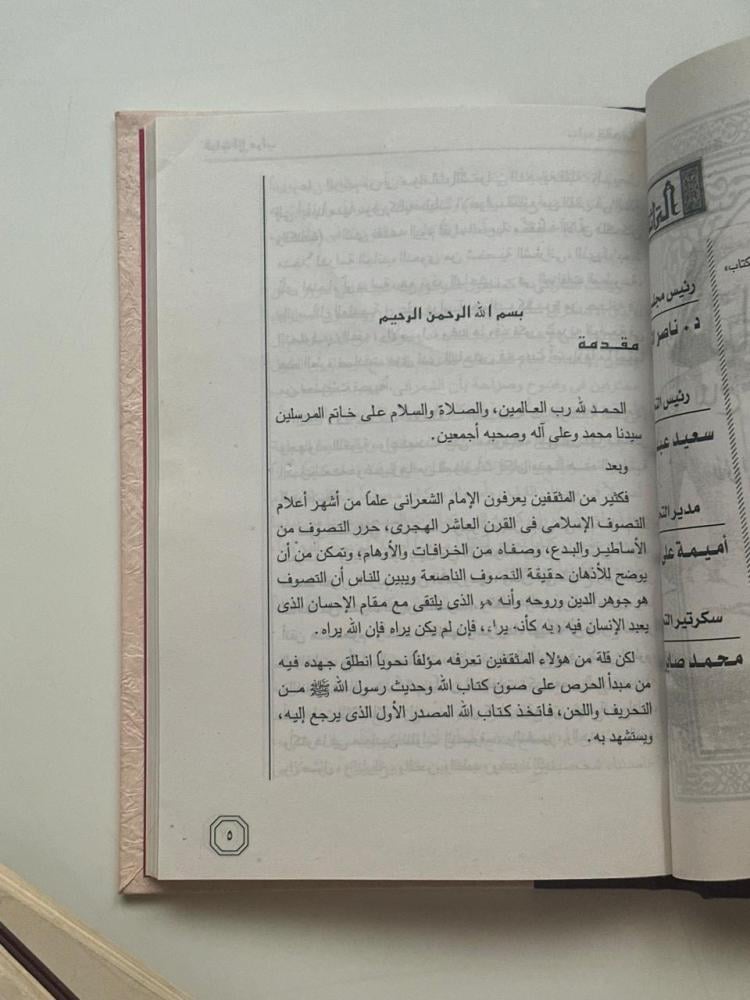 بسم الله الرحمن الرحيم
مقدمة
الحمد لله رب العالمين، والصلاة والسلام على خاتم المرسلين
سيدنا محمد وعلى آله وصحبه أجمعين.
وبعد
فكثير من المثقفين يعرفون الإمام الشعرانى علمًا من أشهر أعلام
التصوف الإسلامى فى القرن العاشر الهجرى، حرر التصوف من
الأساطير والبدع، وصفاه من الخرافات والأوهام، وتمكن من أن
يوضح للأذهان حقيقة التصوف الناصعة ويبين للناس أن التصوف
هو جوهر الدين وروحه وأنه هو الذى يلتقى مع مقام الإحسان الذى
يعبد الإنسان فيه ربه كأنه يراه، فإن لم يكن يراه فإن الله يراه.
لكن قلة من هؤلاء المثقفين تعرفه مؤلفًا نحويًا انطلق جهده فيه
من مبدأ الحرص على صون كتاب الله وحديث رسول الله ﷺ من
التحريف واللحن، فاتخذ كتاب الله المصدر الأول الذى يرجع إليه،
ويستشهد به.
٥
كتاب،
رئيس
د. ناصر
رئيس
سعيد
مدير
أميمة
سكرتير
محمد